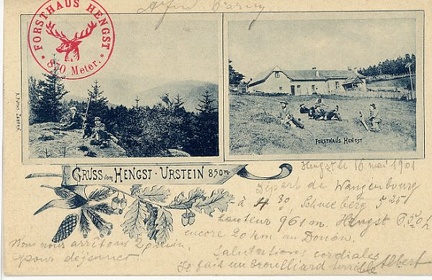 Alfred
FORSTHAUS HENGST
850 Meter.
FORSTHAUS HENGST
GRUSS vom HENGST - URSTEIN 850m
Hengst le 16 mai 1901
Départ de Wangenbourg
à 4 30 Schneeberg 5 35
hauteur 961 m. Hengst
encore 20 km au Donon.
Nous nous arrêtons
pour déjeuner
Salutations cordiales
Il fait un brouillard
Albert